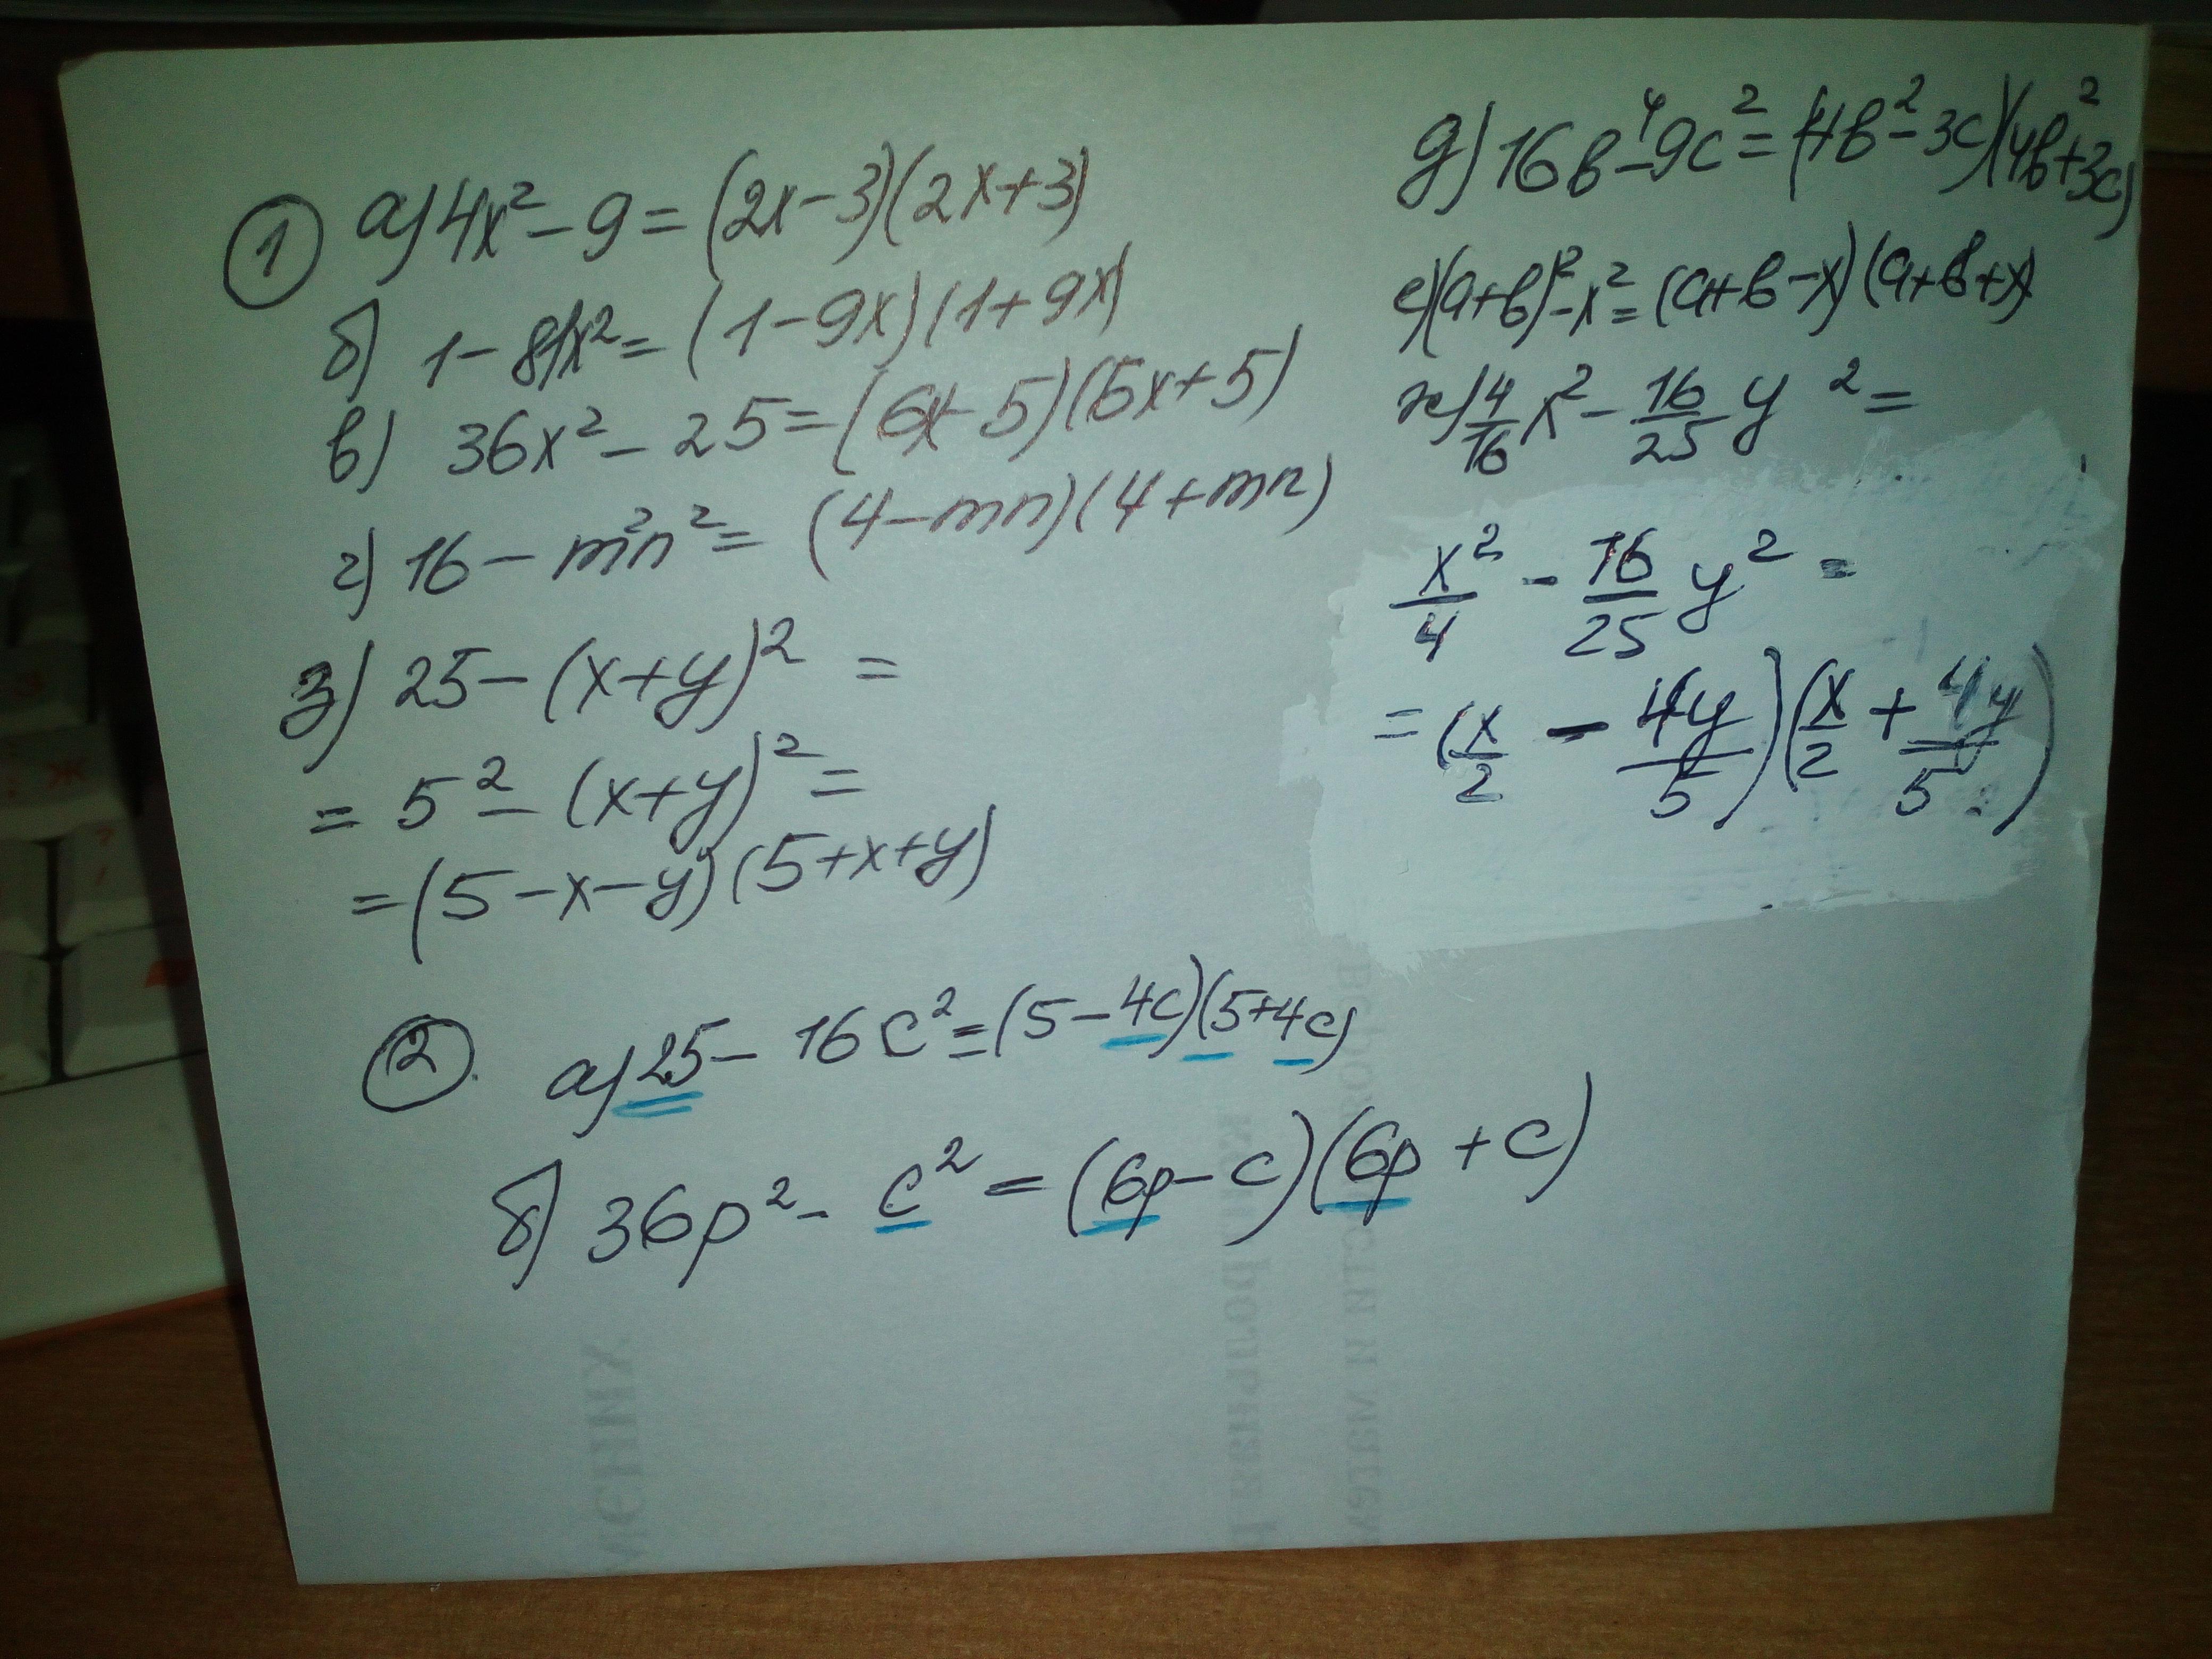 ① а) 4x² - 9 = (2x - 3)(2x + 3)
б) 1 - 81x² = (1 - 9x)(1 + 9x)
в) 36x² - 25 = (6x - 5)(6x + 5)
г) 16 - m²n² = (4 - mn)(4 + mn)
з) 25 - (x + y)² =
= 5² - (x + y)² =
= (5 - x - y)(5 + x + y)
д) 16в⁴ - 9с² = (4в² - 3с)(4в² + 3с)
е) (а + в)² - x² = (а + в - x)(а + в + x)
ж) 4/16 x² - 16/25 y² =
x²/4 - 16/25 y² =
= (x/2 - 4y/5)(x/2 + 4y/5)
② а) 25 - 16с² = (5 - 4с)(5 + 4с)
б) 36p² - с² = (6p - с)(6p + с)